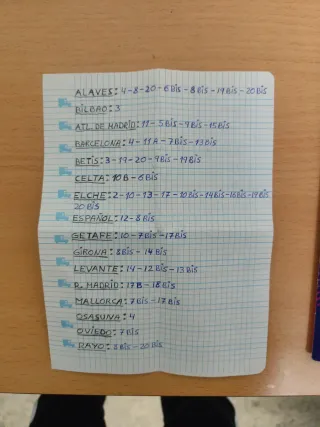 ALAVES: 4-8-20-6Bis-8Bis-19Bis-20Bis
BILBAO: 3
ATL. DE MADRID: 11-5Bis-9Bis-15Bis
BARCELONA: 4-11A-7Bis-13Bis
BETIS: 3-19-20-9Bis-19Bis
CELTA: 10B-6Bis
ELCHE: 2-10-13-17-10Bis-14Bis-16Bis-19Bis
20Bis
ESPAÑOL: 12-8Bis
GETAFE: 10-7Bis-17Bis
GIRONA: 8Bis-14Bis
LEVANTE: 14-12Bis-13Bis
R. MADRID: 17B-18Bis
MALLORCA: 7Bis-17Bis
OSASUNA: 4
OVIEDO: 7Bis
RAYO: 8Bis-20Bis